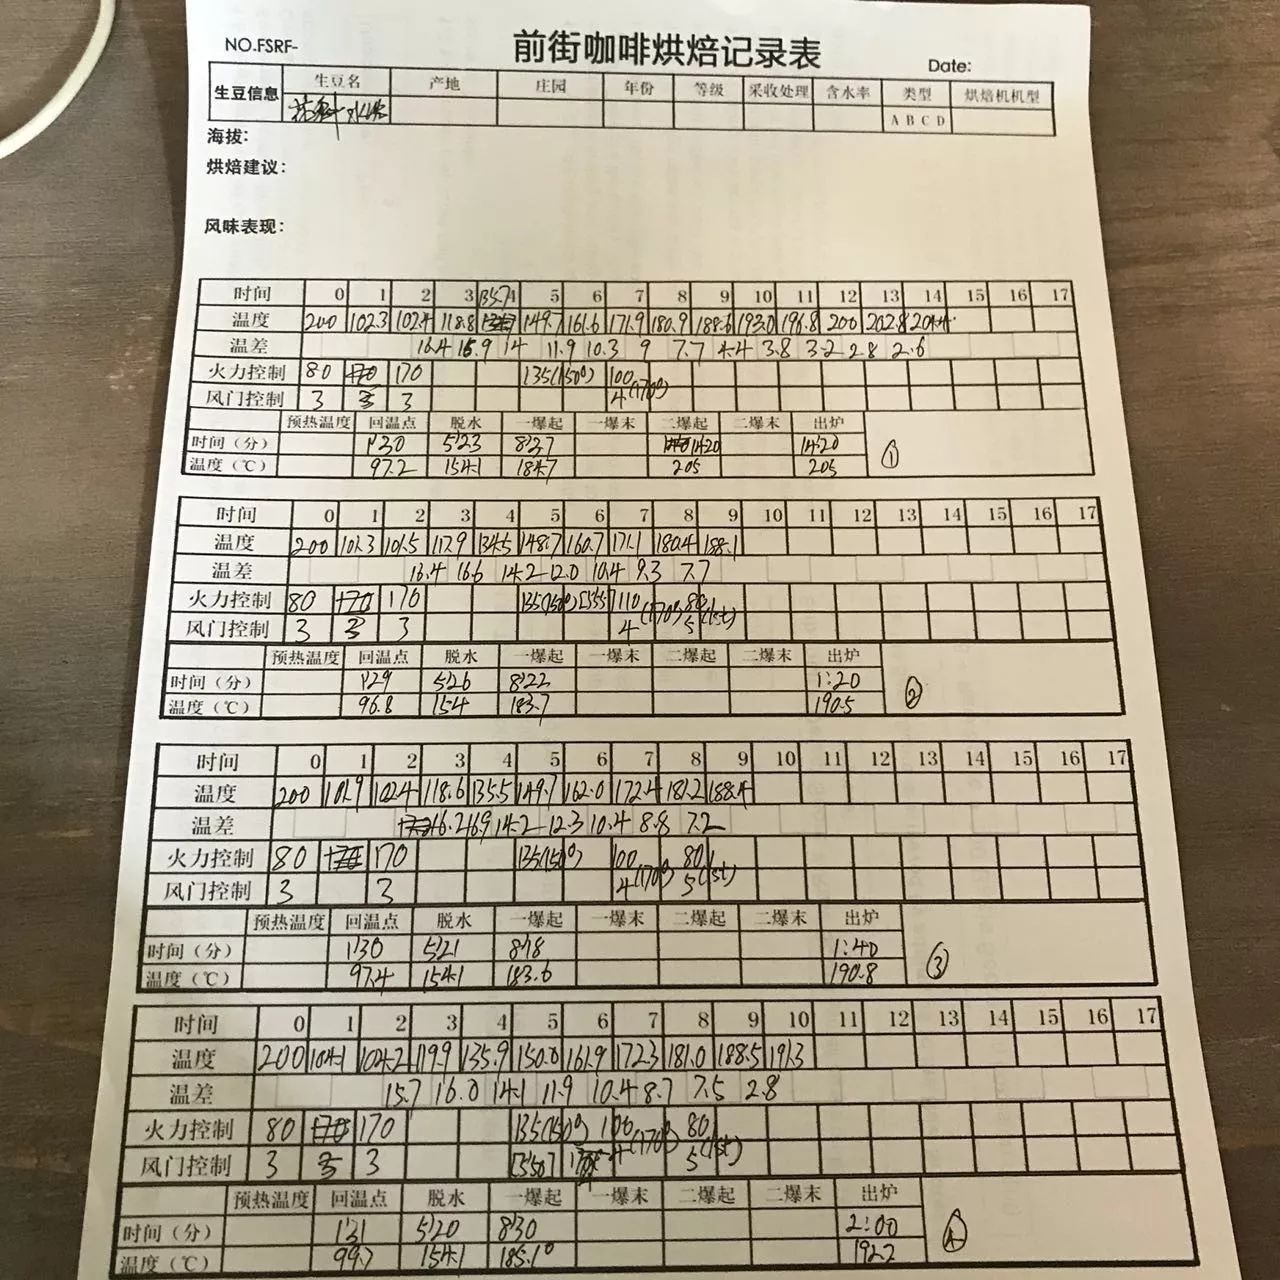 NO.FSRF- 前街咖啡烘焙记录表 Date:
生豆信息 生豆名 产地 庄园 年份 等级 采收处理 含水率 类型 烘焙机机型
A B C D
海拔:
烘焙建议:
风味表现:
时间 0 1 2 3 4 5 6 7 8 9 10 11 12 13 14 15 16 17
135.7
温度 200 102.3 102.4 118.8 149.7 161.6 171.9 180.9 188.6 193.0 196.8 200 202.8 204.4
温差 16.4 15.9 14 11.9 10.3 9 7.7 4.4 3.8 3.2 2.8 2.6
火力控制 80 170 170 135(150°) 100
风门控制 3 3 3 4 (170°)
预热温度 回温点 脱水 一爆起 一爆末 二爆起 二爆末 出炉
时间(分) 1'30 5'23 8'37 14:20 14:20
温度(℃) 97.2 154.1 184.7 205 205 ①
时间 0 1 2 3 4 5 6 7 8 9 10 11 12 13 14 15 16 17
温度 200 101.3 101.5 117.9 134.5 148.7 160.7 171.1 180.4 188.1
温差 16.4 16.6 14.2 12.0 10.4 9.3 7.7
火力控制 80 170 170 135(150°) 110 80
风门控制 3 3 3 4 (170°) 5 (1st)
预热温度 回温点 脱水 一爆起 一爆末 二爆起 二爆末 出炉
时间(分) 1'29 5'26 8'22 1:20
温度(℃) 96.8 154 183.7 190.5 ②
时间 0 1 2 3 4 5 6 7 8 9 10 11 12 13 14 15 16 17
温度 200 101.9 102.4 118.6 135.5 149.7 162.0 172.4 181.2 188.4
温差 16.2 16.9 14.2 12.3 10.4 8.8 7.2
火力控制 80 170 170 135(150°) 100 80
风门控制 3 3 4 (170°) 5 (1st)
预热温度 回温点 脱水 一爆起 一爆末 二爆起 二爆末 出炉
时间(分) 1'30 5'21 8'18 1:40
温度(℃) 97.4 154.1 183.6 190.8 ③
时间 0 1 2 3 4 5 6 7 8 9 10 11 12 13 14 15 16 17
温度 200 104.1 104.2 119.9 135.9 150.0 161.9 172.3 181.0 188.5 191.3
温差 15.7 16.0 14.1 11.9 10.4 8.7 7.5 2.8
火力控制 80 170 170 135(150°) 100 80
风门控制 3 3 3 4 (170°) 5 (1st)
预热温度 回温点 脱水 一爆起 一爆末 二爆起 二爆末 出炉
时间(分) 1'31 5'20 8'30 2:00
温度(℃) 99.7 154.1 185.1° 192.2 ④